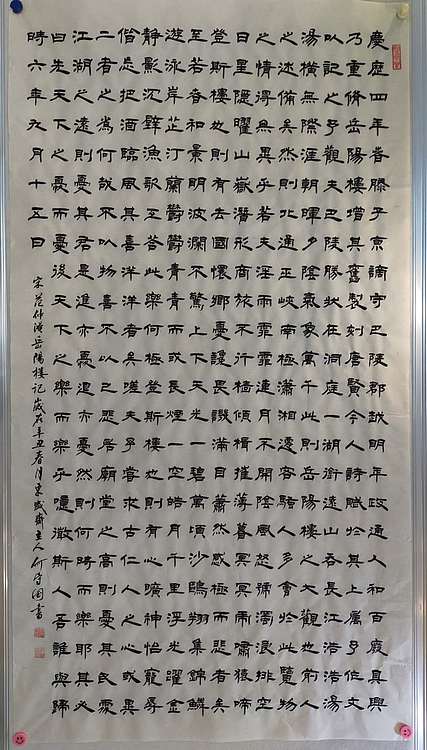 慶曆四年春滕子京謫守巴陵郡越明年政通人和百廢具興
乃重修岳陽樓增其舊製刻唐賢今人詩賦於其上屬予作文
以記之予觀夫巴陵勝狀在洞庭一湖銜遠山吞長江浩浩湯
湯橫無際涯朝暉夕陰氣象萬千此則岳陽樓之大觀也前人
之述備矣然則北通巫峽南極瀟湘遷客騷人多會於此覽物
之情得無異乎若夫淫雨霏霏連月不開陰風怒號濁浪排空
日星隱曜山嶽潛形商旅不行檣傾楫摧薄暮冥冥虎嘯猿啼
登斯樓也則有去國懷鄉憂讒畏譏滿目蕭然感極而悲者矣
至若春和景明波瀾不驚上下天光一碧萬頃沙鷗翔集錦鱗
遊泳岸芷汀蘭鬱鬱青青而或長煙一空皓月千里浮光躍金
靜影沉璧漁歌互答此樂何極登斯樓也則有心曠神怡寵辱
偕忘把酒臨風其喜洋洋者矣嗟夫予嘗求古仁人之心或異
二者之為何哉不以物喜不以己悲居廟堂之高則憂其民處
江湖之遠則憂其君是進亦憂退亦憂然則何時而樂耶其必
曰先天下之憂而憂後天下之樂而樂乎噫微斯人吾誰與歸
時六年九月十五日
宋范仲淹岳陽樓記歲在辛丑春月東齋主人何守國書